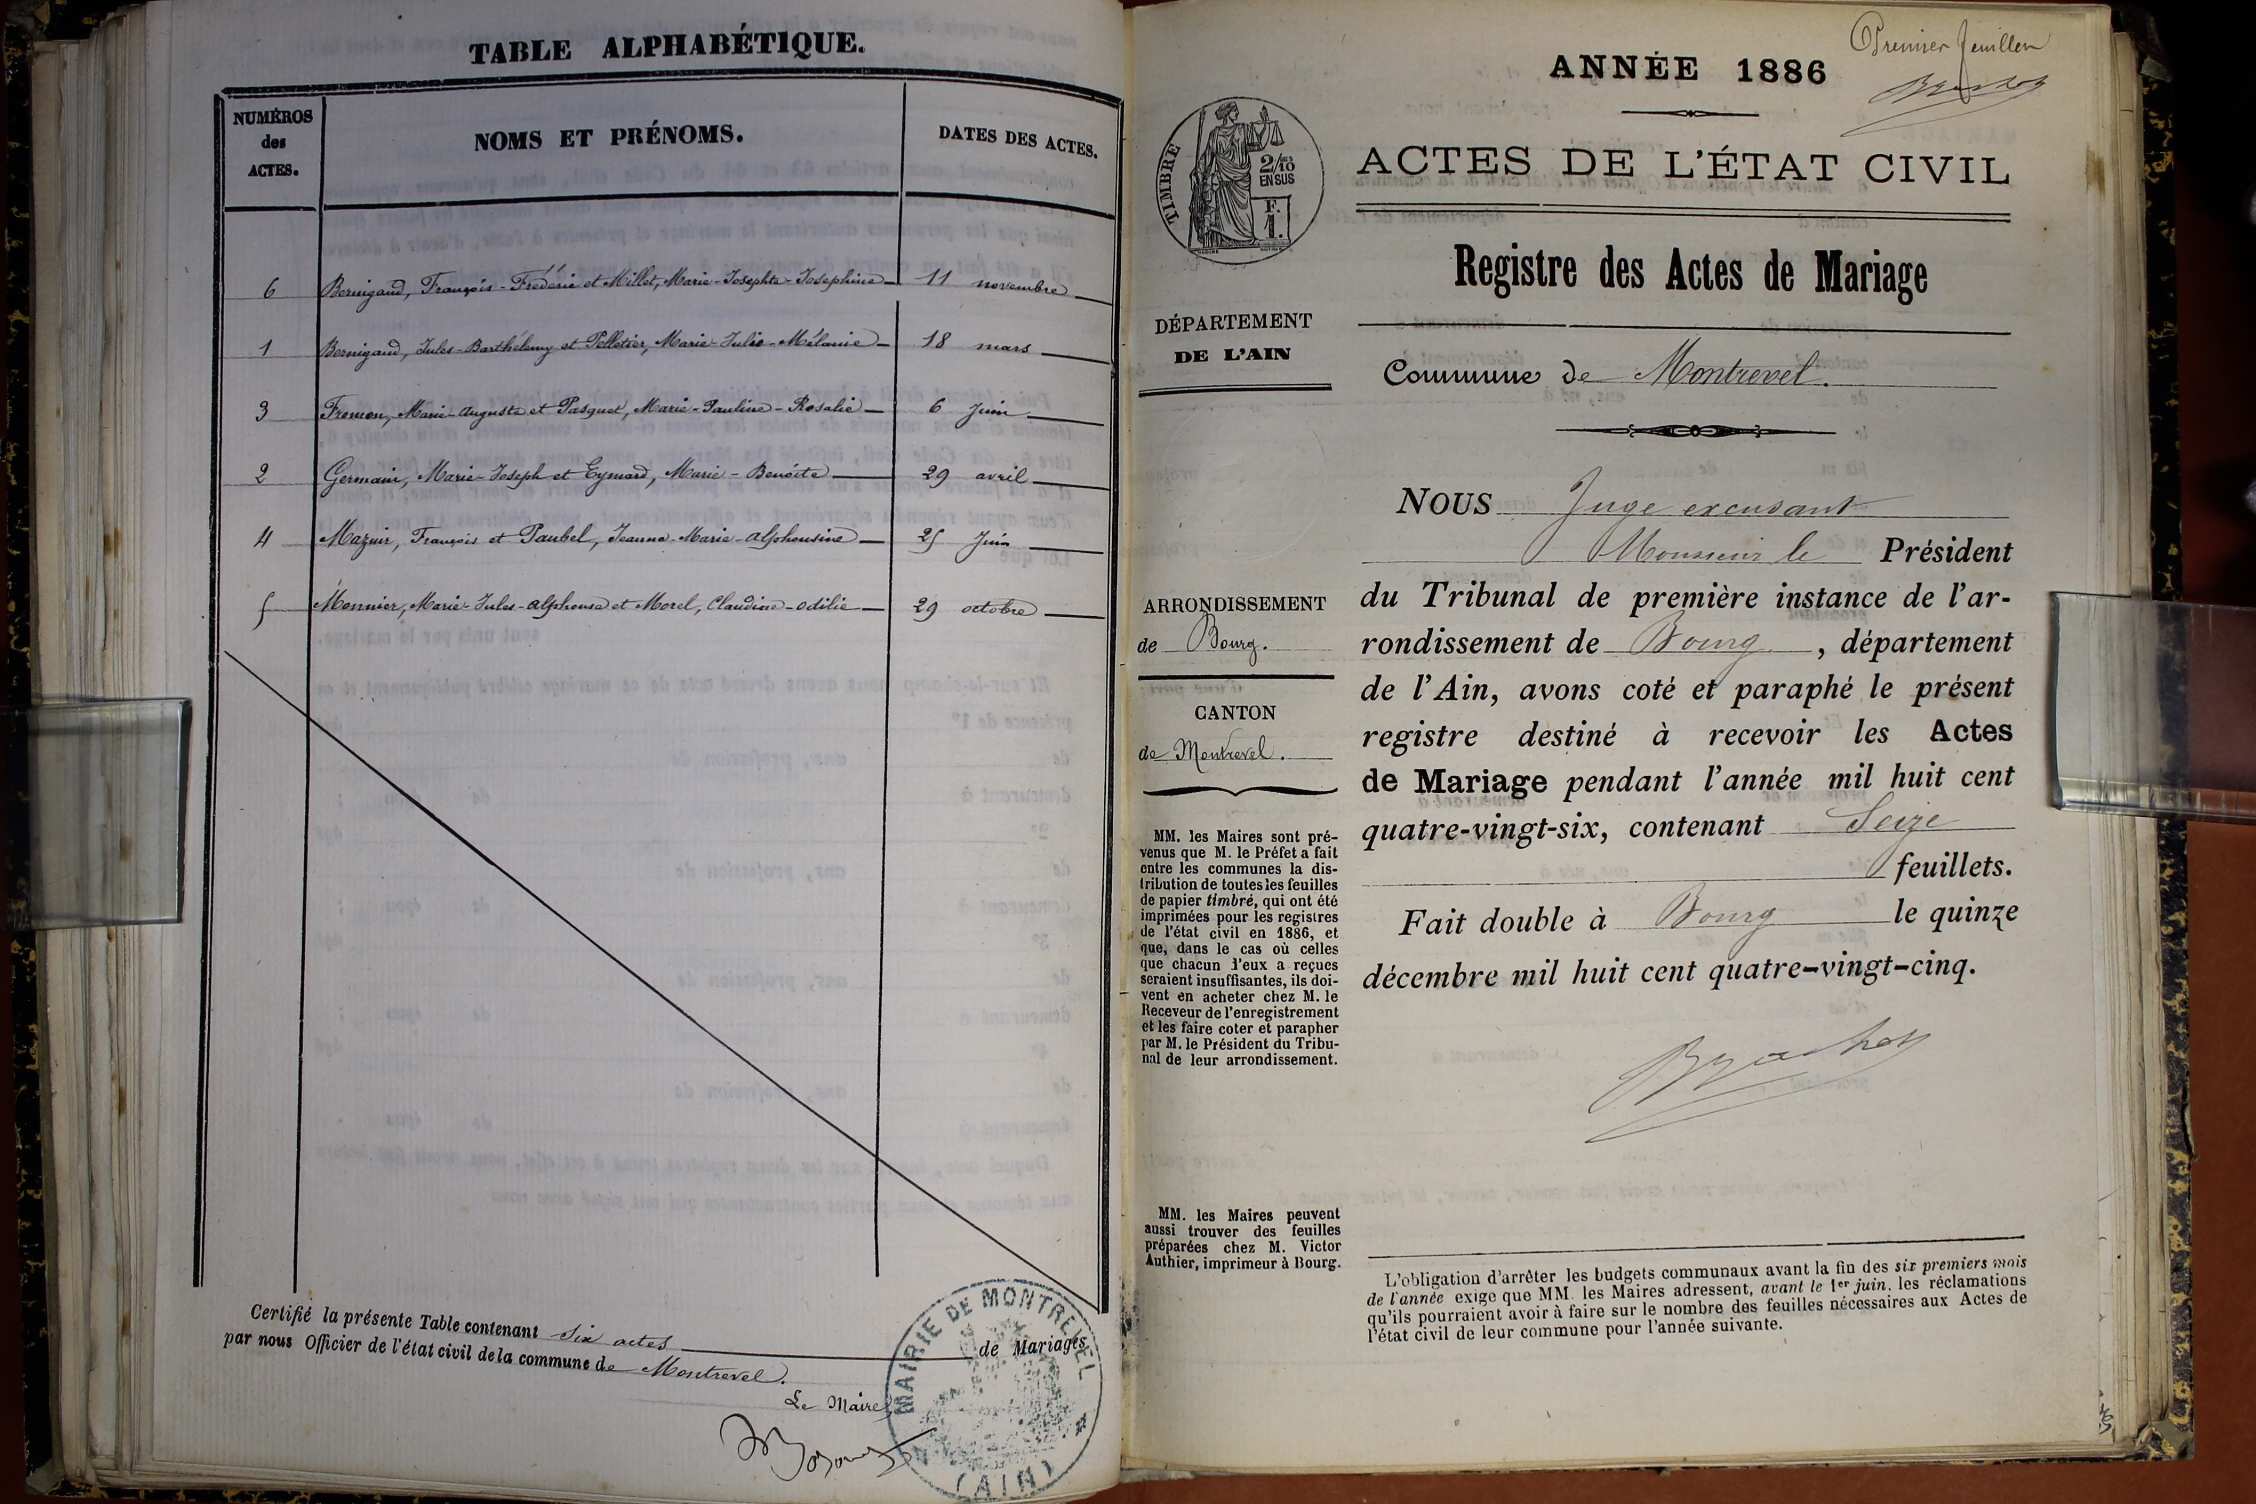 TABLE ALPHABÉTIQUE.
NUMÉROS
des
ACTES.
NOMS ET PRÉNOMS.
DATES DES ACTES.
6 Bernigaud, François-Frédéric et Millet, Marie-Josephte-Joséphine 11 novembre
1 Bernigaud, Jules-Barthélemy et Pelletier, Marie-Julie-Mélanie 18 mars
3 Fremon, Marie-Auguste et Pasquet, Marie-Pauline-Rosalie 6 juin
2 Germain, Marie-Joseph et Eymard, Marie-Benoîte 29 avril
4 Mazuir, François et Paubel, Jeanne-Marie-Alphonsine 25 Juin
5 Monnier, Marie-Jules-Alphonse et Morel, Claudine-Odilie 29 octobre
Certifié la présente Table contenant six actes de Mariages
par nous Officier de l'état civil de la commune de Montrevel.
Le Maire
MAIRIE DE MONTREVEL
(AIN)
Premier feuillet
ANNÉE 1886
TIMBRE
2/10
EN SUS
F.
1.
ACTES DE L'ÉTAT CIVIL
Registre des Actes de Mariage
DÉPARTEMENT
DE L'AIN
Commune de Montrevel.
ARRONDISSEMENT
de Bourg.
CANTON
de Montrevel.
MM. les Maires sont pré-
venus que M. le Préfet a fait
entre les communes la dis-
tribution de toutes les feuilles
de papier timbré, qui ont été
imprimées pour les registres
de l'état civil en 1886, et
que, dans le cas où celles
que chacun d'eux a reçues
seraient insuffisantes, ils doi-
vent en acheter chez M. le
Receveur de l'enregistrement
et les faire coter et parapher
par M. le Président du Tribu-
nal de leur arrondissement.
MM. les Maires peuvent
aussi trouver des feuilles
préparées chez M. Victor
Authier, imprimeur à Bourg.
NOUS Juge excusant
Monsieur le Président
du Tribunal de première instance de l'ar-
rondissement de Bourg, département
de l'Ain, avons coté et paraphé le présent
registre destiné à recevoir les Actes
de Mariage pendant l'année mil huit cent
quatre-vingt-six, contenant Seize
feuillets.
Fait double à Bourg le quinze
décembre mil huit cent quatre-vingt-cinq.
L'obligation d'arrêter les budgets communaux avant la fin des six premiers mois
de l'année exige que MM. les Maires adressent, avant le 1er juin, les réclamations
qu'ils pourraient avoir à faire sur le nombre des feuilles nécessaires aux Actes de
l'état civil de leur commune pour l'année suivante.